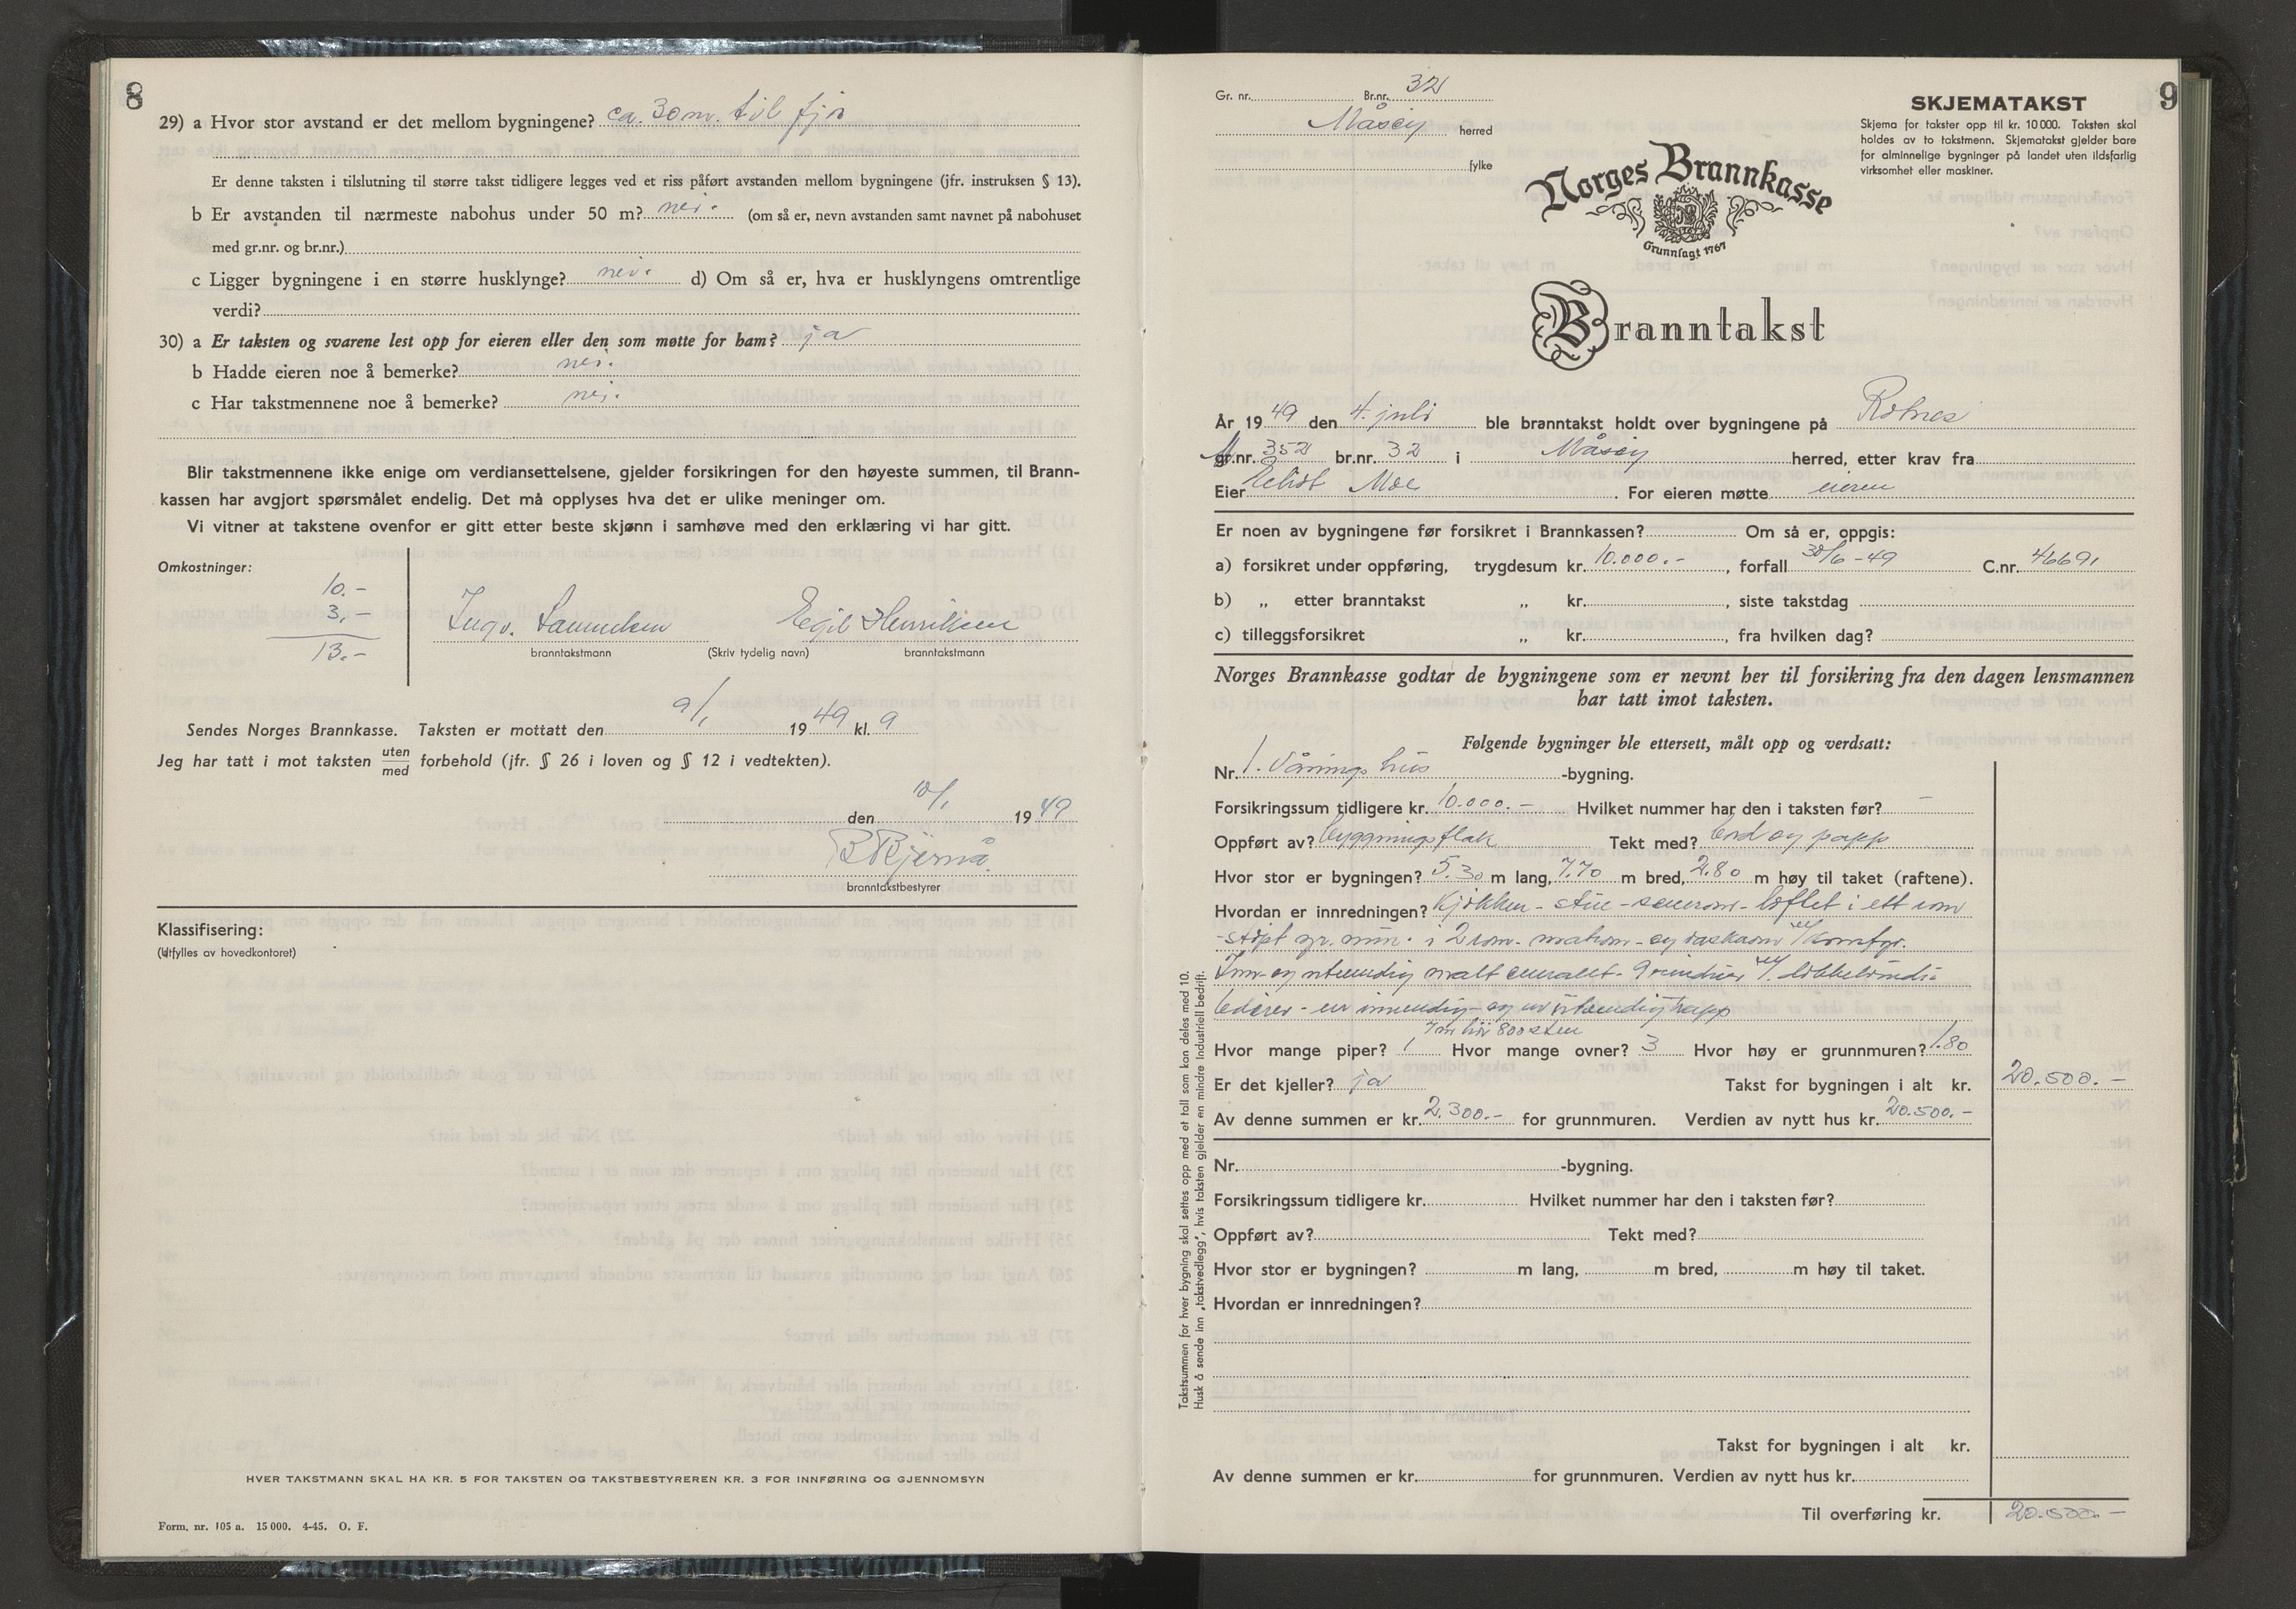 8
29) a Hvor stor avstand er det mellom bygningene? ca. 30 m. til fjøs
Er denne taksten i tilslutning til større takst tidligere legges ved et riss påført avstanden mellom bygningene (jfr. instruksen § 13).
b Er avstanden til nærmeste nabohus under 50 m? nei. (om så er, nevn avstanden samt navnet på nabohuset
med gr.nr. og br.nr.)
c Ligger bygningene i en større husklynge? nei. d) Om så er, hva er husklyngens omtrentlige
verdi?
30) a Er taksten og svarene lest opp for eieren eller den som møtte for ham? ja
b Hadde eieren noe å bemerke? nei.
c Har takstmennene noe å bemerke? nei.
Blir takstmennene ikke enige om verdiansettelsene, gjelder forsikringen for den høyeste summen, til Brann-
kassen har avgjort spørsmålet endelig. Det må opplyses hva det er ulike meninger om.
Vi vitner at takstene ovenfor er gitt etter beste skjønn i samhøve med den erklæring vi har gitt.
Omkostninger:
10.-
3.-
13.-
Ingv. Samuelsen Egil Henriksen
branntakstmann (Skriv tydelig navn) branntakstmann
Sendes Norges Brannkasse. Taksten er mottatt den 9/1 1949 kl. 9
Jeg har tatt i mot taksten uten
med forbehold (jfr. § 26 i loven og § 12 i vedtekten).
den 10/1 1949
branntakstbestyrer
Klassifisering:
(Utfylles av hovedkontoret)
HVER TAKSTMANN SKAL HA KR. 5 FOR TAKSTEN OG TAKSTBESTYREREN KR. 3 FOR INNFØRING OG GJENNOMSYN
Form. nr. 105 a. 15 000. 4-45. O. F.
9
Gr. nr. Br.nr. 32
Måsøy herred
fylke
SKJEMATAKST
Skjema for takster opp til kr. 10 000. Taksten skal
holdes av to takstmenn. Skjematakst gjelder bare
for alminnelige bygninger på landet uten ildsfarlig
virksomhet eller maskiner.
Norges Brannkasse
Grunnlagt 1767
Branntakst
År 1949 den 4. juli ble branntakst holdt over bygningene på
gr.nr. 352 br.nr. 32 i Måsøy herred, etter krav fra
Eier Moe. For eieren møtte eieren
Er noen av bygningene før forsikret i Brannkassen? Om så er, oppgis:
a) forsikret under oppføring, trygdesum kr. 10.000.-, forfall 30/6-49 C.nr. 46691
b) „ etter branntakst „ kr., siste takstdag
c) tilleggsforsikret „ kr., fra hvilken dag?
Norges Brannkasse godtar de bygningene som er nevnt her til forsikring fra den dagen lensmannen
har tatt imot taksten.
Følgende bygninger ble ettersett, målt opp og verdsatt:
Nr. 1. Våningshus -bygning.
Forsikringssum tidligere kr. 10.000.- Hvilket nummer har den i taksten før? -
Oppført av? byggningsflak Tekt med? bord og papp
Hvor stor er bygningen? 5.30 m lang, 7.70 m bred, 2.80 m høy til taket (raftene).
Hvordan er innredningen? Kjøkken - stue - soverom - loftet i ett rom
- støpt gr. mur. i 2 rom - matrom - og vaskrom m/komfyr.
Inn- og utvendig malt overalt - 9 vinduer
en innvendig - og en utvendig trapp
7 m høi 800 sten
Hvor mange piper? 1 Hvor mange ovner? 3 Hvor høy er grunnmuren? 1.80
Er det kjeller? ja Takst for bygningen i alt kr. 20.500.-
Av denne summen er kr. 2.300.- for grunnmuren. Verdien av nytt hus kr. 20.500.-
Nr. -bygning.
Forsikringssum tidligere kr. Hvilket nummer har den i taksten før?
Oppført av? Tekt med?
Hvor stor er bygningen? m lang, m bred, m høy til taket.
Hvordan er innredningen?
Takst for bygningen i alt kr.
Av denne summen er kr. for grunnmuren. Verdien av nytt hus kr.
Til overføring kr. 20.500.-
Takstsummen for hver bygning skal settes opp med et tall som kan deles med 10.
Husk å sende inn „takstvedlegg", hvis taksten gjelder en mindre industriell bedrift.